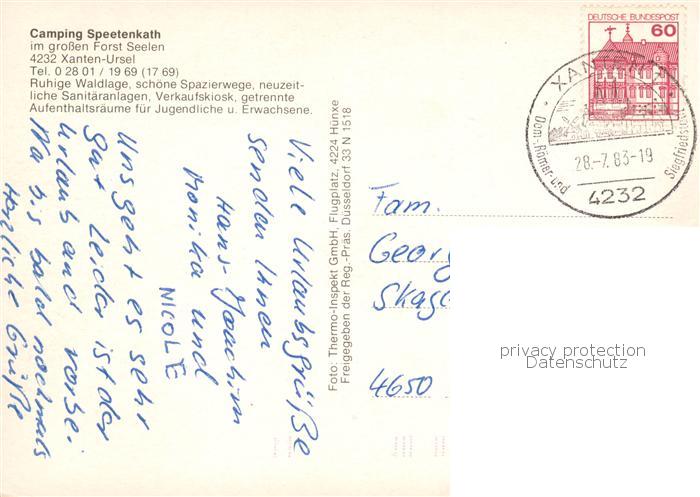 Camping Speetenkath
im großen Forst Seelen
4232 Xanten-Ursel
Tel. 0 28 01 / 19 69 (17 69)
Ruhige Waldlage, schöne Spazierwege, neuzeit-
liche Sanitäranlagen, Verkaufskiosk, getrennte
Aufenthaltsräume für Jugendliche u. Erwachsene.
Viele Urlaubsgrüße
senden Ihnen
Hans-Joachim
Monika und
NICOLE
Uns geht es sehr
gut leider ist der
Urlaub and vorbei
Na bis bald nochmals
Herzliche Grüße
Foto: Thermo-Inspekt GmbH, Flugplatz, 4224 Hünxe
Freigegeben der Reg.-Präs. Düsseldorf 33 N 1518
DEUTSCHE BUNDESPOST
60
XANTEN
Dom-, Römer- und
Siegfriedstadt
28.-7.83-19
4232
Fam.
Georg
4650
privacy protection
Datenschutz